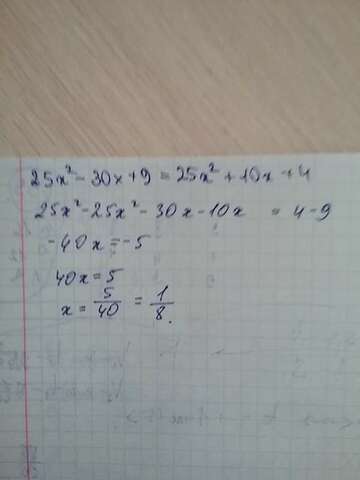 25x² - 30x + 9 = 25x² + 10x + 4
25x² - 25x² - 30x - 10x = 4 - 9
-40x = -5
40x = 5
x = 5/40 = 1/8.